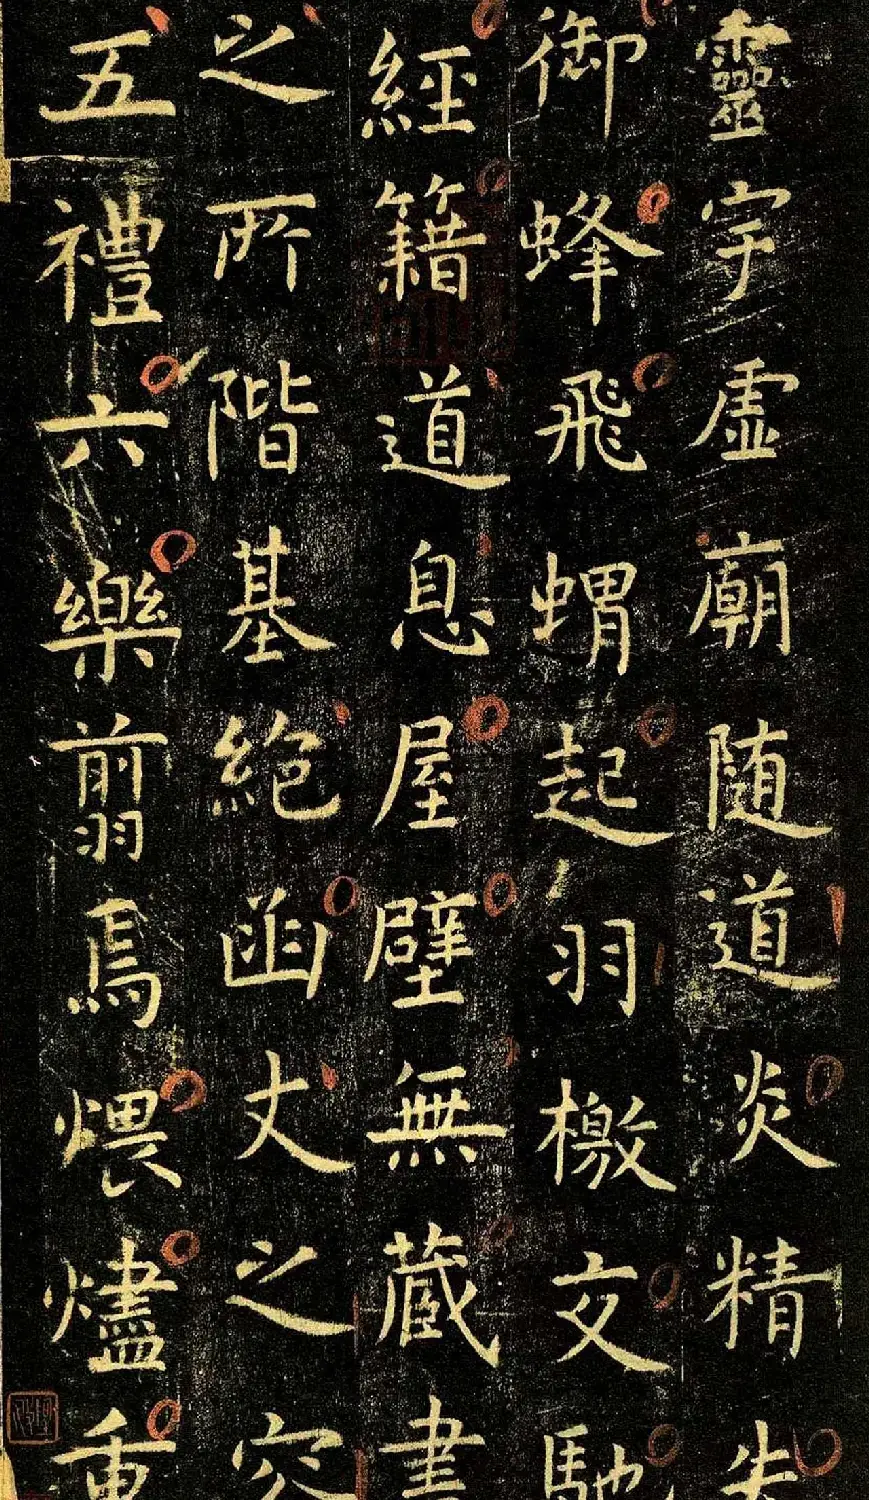 靈宇虛廟随道炎精失
御蜂飛蝟起羽檄交馳
經籍道息屋壁無藏書
之所階基絶函丈之容
五禮六樂翦焉煨燼重